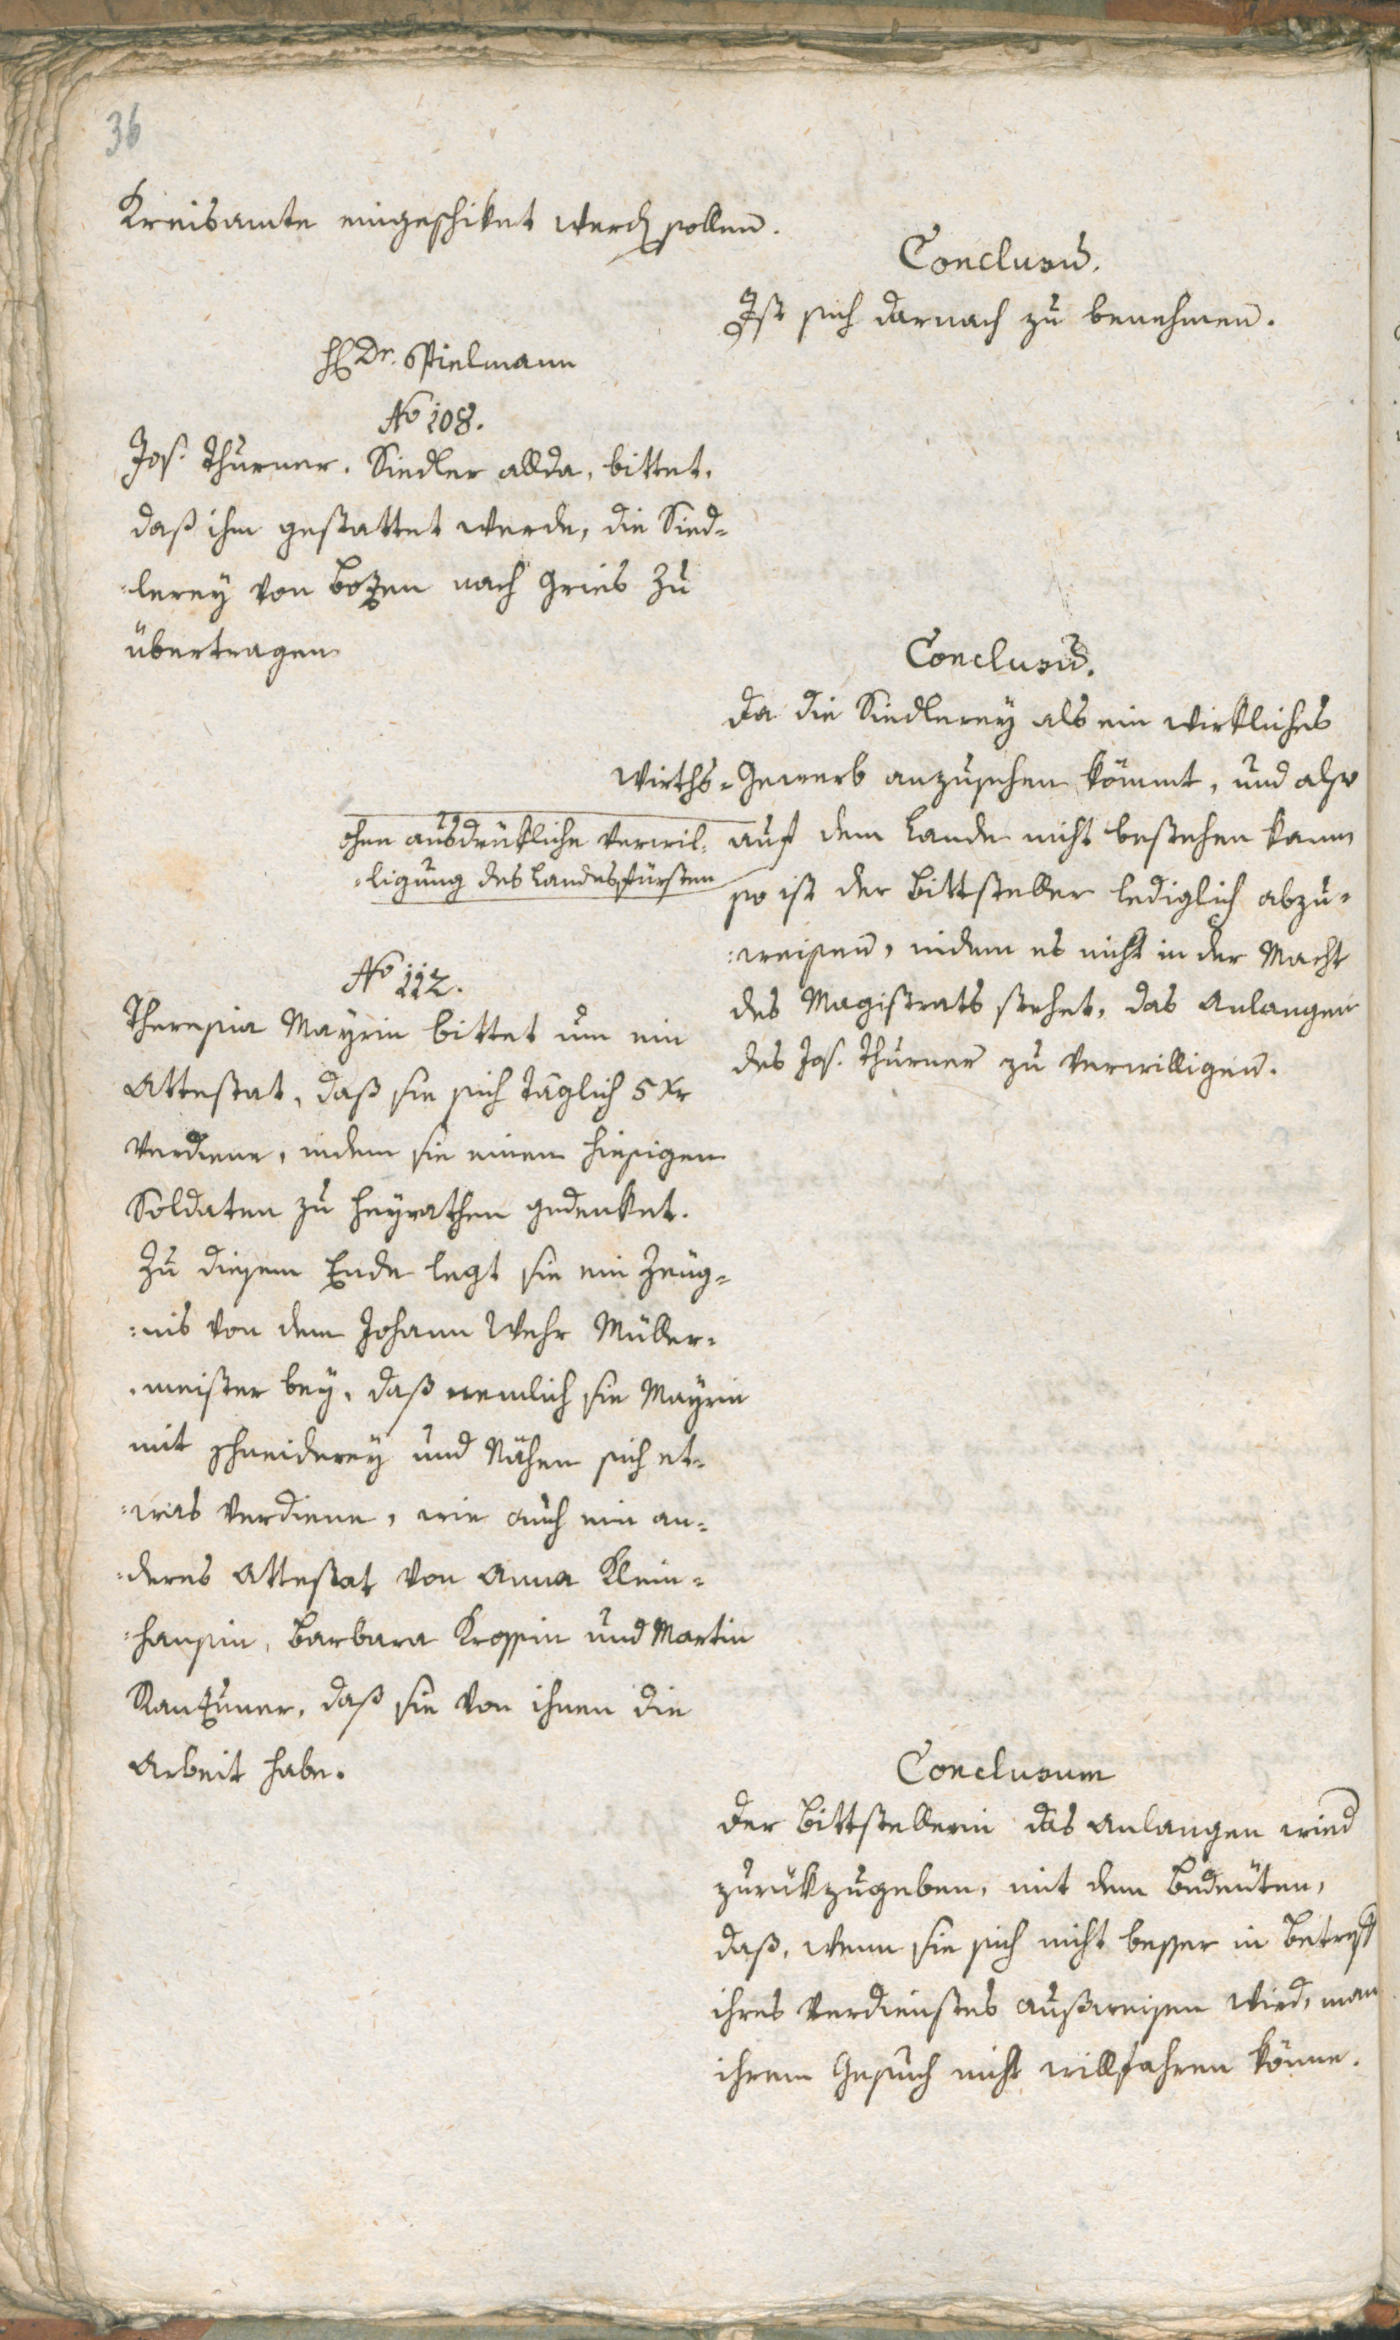 36
Kreisamte eingeschiket werden sollen.
Conclusū.
Ist sich darnach zu benehmen.
H Dr. Spielmann
No 108.
Jos. Thurner. Siedler allda, bittet,
daß ihm gestattet werde, die Sied=
=lerey von Bozen nach Gries zu
übertragen
Conclusū.
Da die Siedlerey als ein wirkliches
Wirths=Gewerb anzusehen kömmt, und also
auf dem Lande nicht bestehen kann
ohne ausdrükliche Verwil=
=ligung des Landesfürsten
so ist der Bittsteller lediglich abzu=
=weisen, indem es nicht in der Macht
des Magistrats stehet, das Anlangen
des Jos. Thurner zu verwilligen.
No 112.
Theresia Mayrin bittet um ein
Attestat, daß sie sich täglich 5 Xr
verdiene, indem sie einen hiesigen
Soldaten zu heyrathen gedenket.
Zu diesem Ende legt sie ein Zeug=
=nis von dem Johann Wehr Müller=
=meister bey, daß nemlich sie Mayrin
mit Schneiderey und Nähen sich et=
=was verdiene, wie auch ein an=
=deres Attestat von Anna Klein=
=hansin, Barbara Krossin und Martin
daß sie von ihnen die
Arbeit habe.
Conclusum
Der Bittstellerin das Anlangen wird
zurükzugeben, mit dem Bedeuten,
daß, wenn sie sich nicht besser in Betreff
ihres Verdienstes außweisen wird, man
ihrem Gesuch nicht willfahren könne.